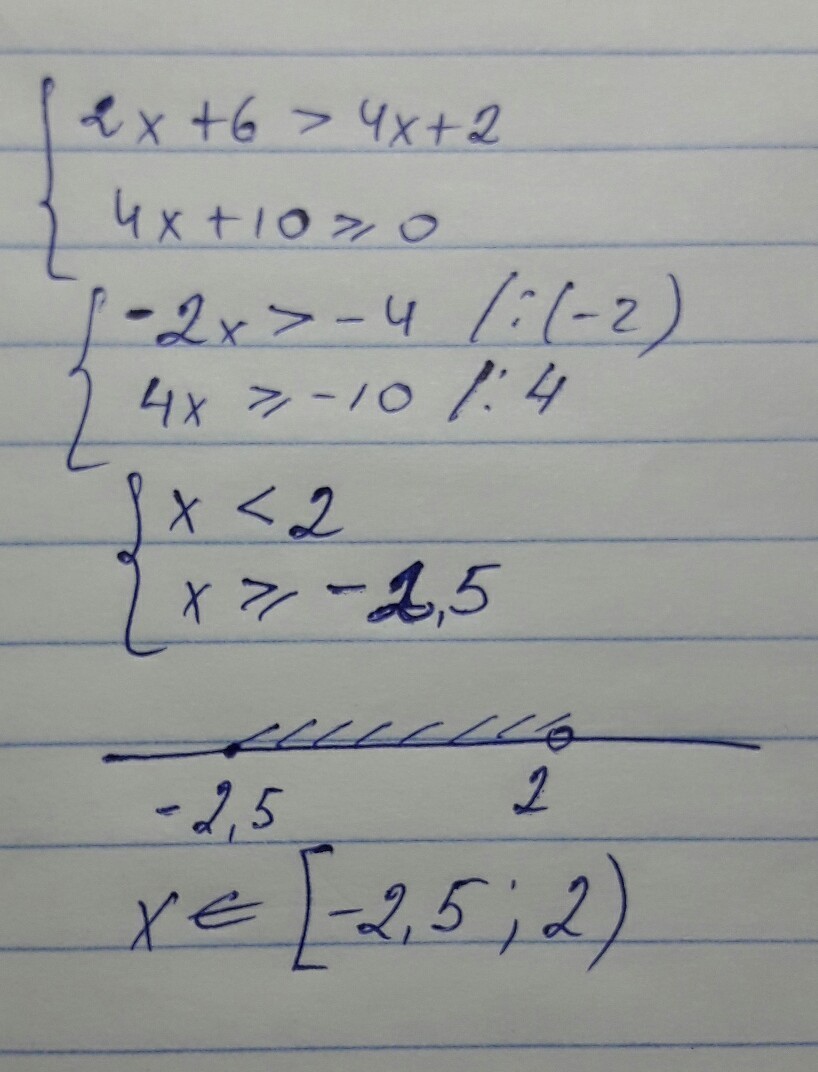 2x + 6 > 4x + 2
4x + 10 ⩾ 0
-2x > -4 /:(-2)
4x ⩾ -10 /:4
x < 2
x ⩾ -2,5
-2,5 2
x ∈ [-2,5 ; 2)